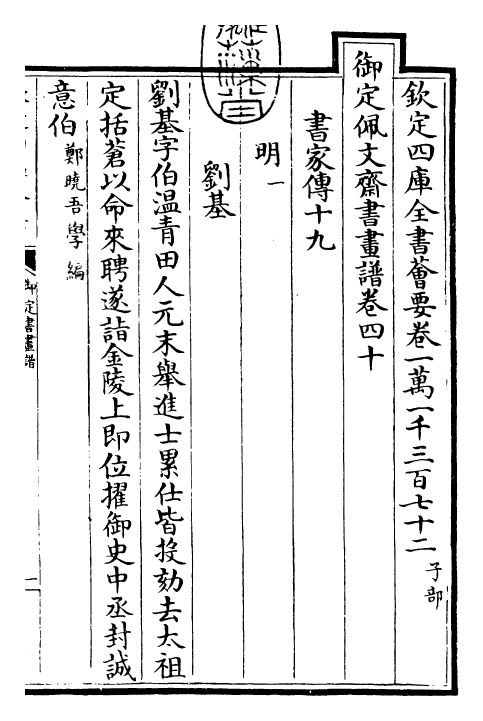 欽定四庫全書薈要卷一萬一千三百七十二 子部
御定佩文齋書畫譜卷四十
書家傳十九
明一
劉基
劉基字伯溫青田人元末舉進士累仕皆投劾去太祖
定括蒼以命來聘遂詣金陵上即位擢御史中丞封誠
意伯 鄭曉吾學編
御定書畫譜
一